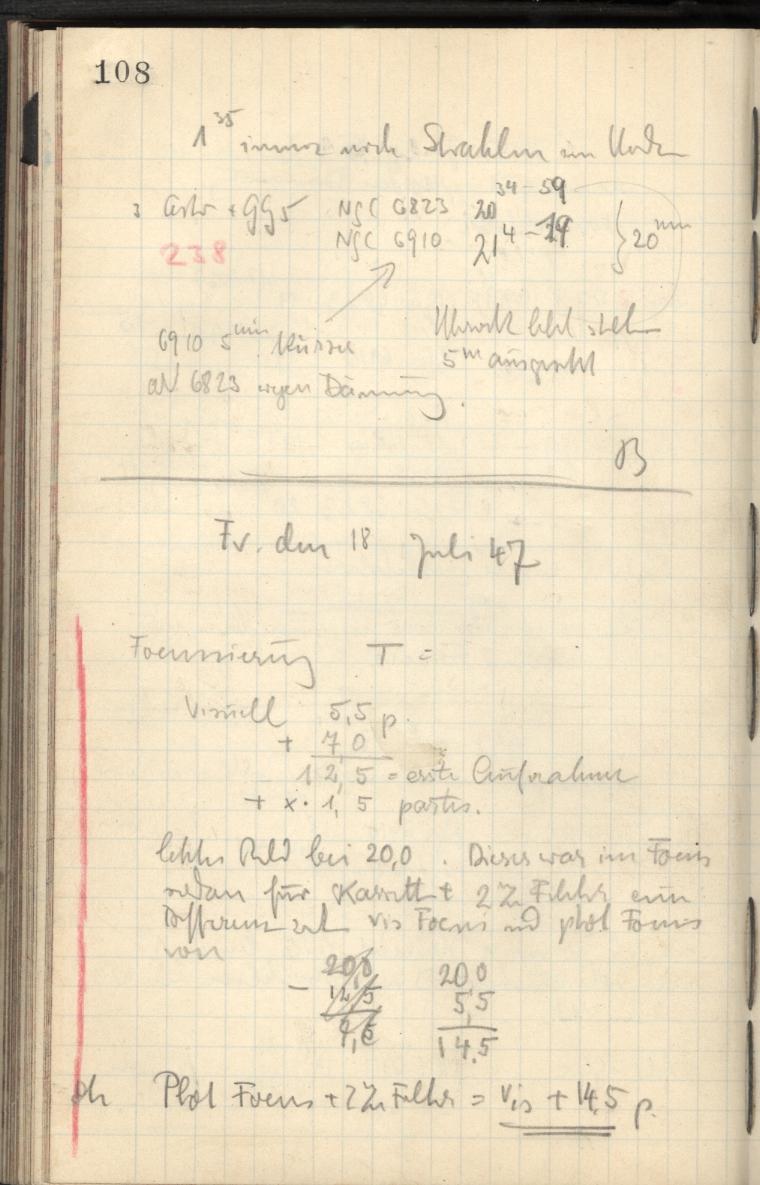 108
1 35 immer noch Strahlen im Norden
3 Astro + GG5 NGC 6823 20 34 - 59
238 NGC 6910 21 4 - 19 } 20 min
6910 5 min kürzer
als 6823 wegen Dämmrung.
Uhrwerk blieb stehen
5 m ausgesetzt
B
Fr. den 18 Juli 47
Focussierung T =
Visuell 5,5 p.
+ 7 0
12,5 = erste Aufnahme
+ x · 1,5 partes.
letztes Bild bei 20,0. Dieses war im Focus
sodan für Kassette + 2 Filter eine
Differenz vis Focus und phot Focus
von
20,0
- 12,5
20,0
5,5
14,5
dh Phot Focus + 2 Filter = vis + 14,5 p.